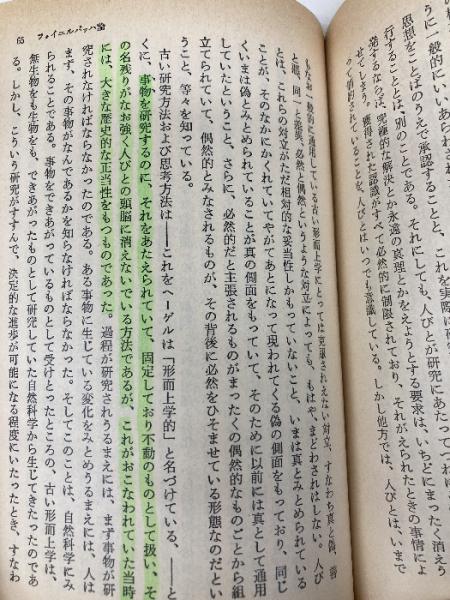 うに一般的にいい
思想をことばのうえで承認することと、これを実際に研
行することとは、別のことである。それにしても、人びとが研究にあたってつね
発するならば、究極的な解決とか永遠の真理とかをえようとする要求は、いちどにまったく消えう
せてしまう。獲得された認識がすべて必然的に制限されており、それがえられたときの事情によ
って制約されていることを、人びとはいつでも意識している。しかし他方では、人びとは、いまで
もなお一般的に通用している古い形而上学にとっては克服されえない対立、すなわち真と偽、善
と悪、同一と差異、必然と偶然というような対立によっても、もはや、まどわされはしない。人び
とは、これらの対立がただ相対的な妥当性しかもっていないこと、いまは真とみとめられている
ことが、そのなかにかくれていてやがてあとになって現われてくる偽の側面をもっており、同じ
くいまは偽とみとめられていることが真の側面をもっていて、そのために以前には真として通用
していたということ、さらに、必然的だと主張されるものがまったくの偶然的なものごとから組
立てられていて、偶然的とみなされるものが、その背後に必然をひそませている形態なのだとい
うこと、等々を知っている。
古い研究方法および思考方法は――これをヘーゲルは「形而上学的」と名づけている、――と
くに、事物を研究するのに、それをあたえられていて、固定しており不動のものとして扱い、そ
の名残りがなお強く人びとの頭脳に消えないでいる方法であるが、これがおこなわれていた当時
には、大きな歴史的な正当性をもつものであった。過程が研究されうるまえには、まず事物が研
究されなければならなかったのである。ある事物に生じている変化をみとめうるまえには、人は
まず、その事物がなんであるかを知らなければならなかった。そしてこのことは、自然科学にみ
られることである。事物をできあがっているものとして受けとったところの、古い形而上学は、
無生物をも生物をも、できあがったものとして研究していた自然科学から生じてきたのであ
る。しかし、こういう研究がすすんで、決定的な進歩が可能になる程度にいたったとき、すなわ
65 フォイエルバッハ論